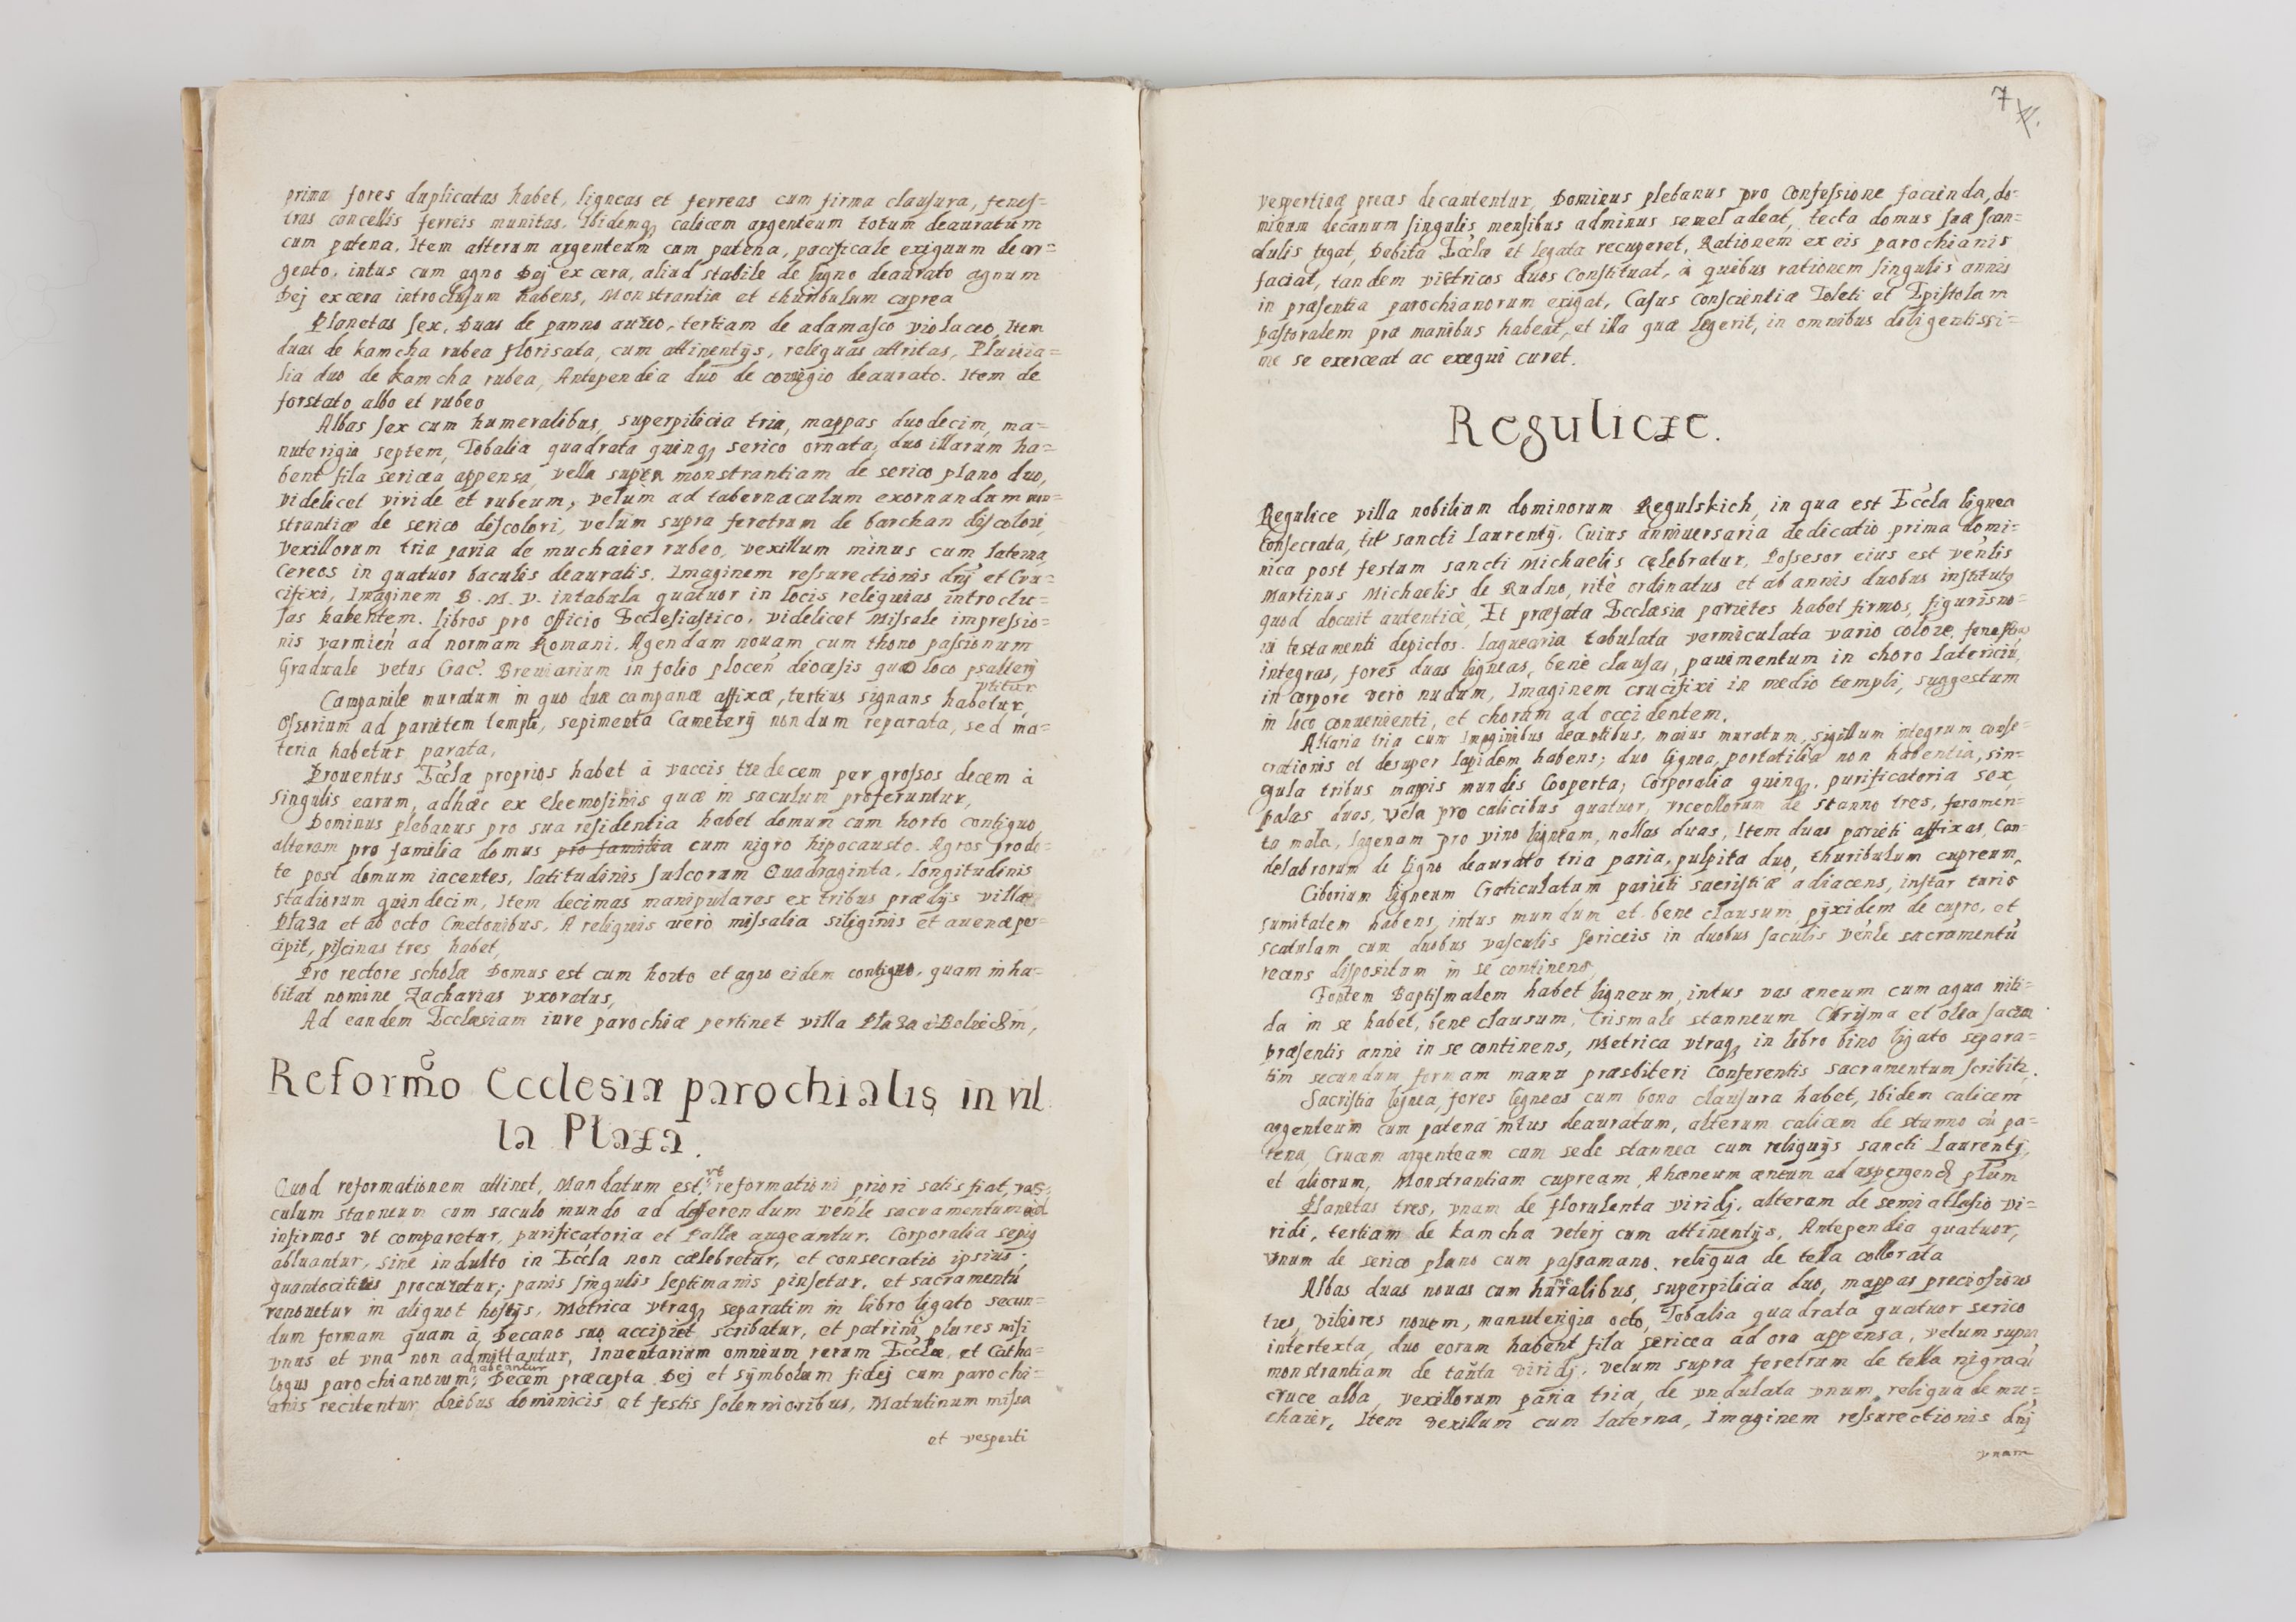 prima fores duplicatas habet, ligneas et ferreas cum firma clausura, fenes=
tras cancellis ferreis munitas. Ibidemq calicem argenteum totum deauratum
cum patena. Item alterum argenteum cum patena, pacificale exiguum de ar=
gento, intus cum agno Dej ex cera, aliud stabile de ligno deaurato agnum
Dej ex cera introclusum habens, Monstrantia et thuribulum cuprea
Planetas sex, Duas de panno aureo, tertiam de adamasco violaceo, Item
duas de kamcha rubea florisata, cum attinentijs, reliquas attritas, Pluuia=
lia duo de kamcha rubea, Antependia duo de corigio deaurato. Item de
forstato albo et rubeo
Albas sex cum humeralibus, superpilicia tria, mappas duodecim, ma=
nuterigia septem, Tobalia quadrata quinq serico ornata, duo illarum ha=
bent fila sericea appensa, vella super monstrantiam de serico plano duo,
videlicet viride et rubeum, velum ad tabernaculum exornandum mon=
strantiæ de serico discolori, velum supra feretrum de barchan discolori,
vexillorum tria paria de muchaier rubeo, vexillum minus cum laterna,
cereos in quatuor baculis deauratis. Imaginem ressurectionis dnj et Cru=
cifixi, Imaginem B. M. V. in tabula quatuor in locis reliquias introclu=
sas habentem. libros pro officio Ecclesiastico, videlicet Missale impressio=
nis varmien ad normam Romani. Agendam nouam cum thono passionum
Graduale vetus Crac. Breuiarium in folio plocen diocesis quo loco psalterij
vtitur
Campanile muratum in quo duæ campanæ affixæ, tertius signans habetur,
Ossorium ad parietem templi, sepimenta Cameterij nondum reparata, sed ma=
teria habetur parata,
Prouentus Eccłæ proprios habet à vaccis tredecem per grossos decem à
singulis earum, adhæc ex eleemosinis quæ in saculum proferuntur,
Dominus plebanus pro sua residentia habet domum cum horto contiguo
alteram pro familia domus pro familia cum nigro hipocausto. Agros prode=
te post domum iacentes, latitudinis sulcorum Quadraginta, longitudinis
stadiorum quindecim, Item decimas manipulares ex tribus prædijs villæ
Plaza et ab octo Cmetonibus, A reliquis uerò missalia siliginis et auenæ per=
cipit, piscinas tres habet,
Pro rectore scholæ Domus est cum horto et agro eidem contiguo, quam inha=
bitat nomine Zacharias vxoratus,
Ad eandem Ecclæsiam iure parochiæ pertinet villa Plaza
Reformo Ecclesiæ parochialis in vil
la Plaza.
Quod reformationem attinet, Mandatum est, vt reformationi priori satis fiat, vas=
culum stanneum cum saculo mundo ad deferendum venle sacramentum ad
infirmos vt comparetur, purificatoria et Pallæ augeantur. Corporalia sepius
abluantur, sine indulto in Eccła non cælebretur, et consecratio ipsius
quantocitius procuretur; panis singulis septimanis pinsetur, et sacramentu
renouetur in aliquot hostijs, Metrica vtraq separatim in libro ligato secun=
dum formam quam à Decano suo accipiet scribatur, et patrini plures nisi
vnus et vna non admittantur, Inuentarium omnium rerum Eccłæ et Catha=
logus parochianorum habeantur, Decem præcepta Dej et symbolum fidej cum parochi=
anis recitentur diebus dominicis et festis solennioribus, Matutinum missa
et vesperti
7
vespertinæ preces decantentur, Dominus plebanus pro Confessione facienda, do=
minum decanum singulis mensibus adminus semel adeat, tecta domus suæ scan=
dulis tegat, Debita Eccłæ et legata recuperet, Rationem ex eis parochianis
faciat, tandem vistricos duos Constituat, à quibus rationem singulis annis
in præsentia parochianorum exigat, Casus Conscientiæ Toleti et Epistolam
pastoralem præ manibus habeat, et illa quæ legerit, in omnibus diligentissi=
me se exerceat ac exequi curet.
Regulicze.
Regulice villa nobilium dominorum Regulskich, in qua est Eccła lignea
Consecrata, tit sancti Laurentij. Cuius anniuersaria dedicatio prima domi=
nica post festum sancti Michaelis cælebratur. Possesor eius est venlis
Martinus Michaelis de Rudno, ritè ordinatus et ab annis duobus institutus
quod docuit autenticè, Et præfata Ecclæsia parietes habet firmos, figuris no=
ui testamenti depictos. laquearia tabulata vermiculata vario colore, fenestras
integras, fores duas ligneas, benè clausas, pauimentum in choro latericiu,
in corpore verò nudum, Imaginem crucifixi in medio templi, suggestum
in loco conuenienti, et chorum ad occidentem.
Altaria tria cum Imaginibus decentibus, maius muratum, sigillum integrum conse=
crationis et desuper lapidem habens; duo lignea, portatilia non habentia, sin=
gula tribus mappis mundis Cooperta; Corporalia quinq, purificatoria sex,
palas duas, vela pro calicibus quatuor, vrceollorum de stanno tres, feramen=
ta mala, lagenam pro vino ligneam, nollas duas, Item duas parieti affixas, Can=
delabrorum de ligno deaurato tria paria, pulpita duo, thuribulum cupreum,
Ciborium ligneum Craticulatum parieti sacristiæ adiacens, instar turis
sumitatem habens, intus mundum et bene clausum, pyxidem de cupro, et
scatulam cum duobus vasculis sericeis in duobus saculis venle sacramentu
recens dispositum in se continens,
Fontem Baptismalem habet ligneum, intus vas æneum cum aqua niti=
da in se habet, bene clausum, Crismale stanneum Chrisma et olea sacra
præsentis anni in se continens, Metrica vtraq in libro bino ligato separa=
tim secundum formam manu præsbiteri Conferentis sacramentum scribit.
Sacristia lignea, fores ligneas cum bona clausura habet, Ibidem calicem
argenteum cum patena intus deauratum, alterum calicem de stanno cu pa=
tena, Crucem argenteam cum sede stannea cum reliquijs sancti Laurentij,
et aliorum, Monstrantiam cupream, Ahæneum
Planetas tres, vnam de florulenta viridj, alteram de semiatlasio vi=
ridi, tertiam de kamcha veterj cum attinentijs, Antependia quatuor,
vnum de serico plano cum passamano, reliqua de tella collorata
Albas duas nouas cum humeralibus, superpilicia duo, mappas preciosiores
tres, viliores nouem, manuterigia octo, Tobalia quadrata quatuor serico
intertexta, duo eorum habent fila sericea ad ora appensa, velum supra
monstrantiam de tanta viridj, velum supra feretrum de tella nigra cu
cruce alba, vexillorum paria tria, de vndulata vnum, reliqua de mu=
chaier, Item vexillum cum laterna, Imaginem ressurectionis dnj
vnam